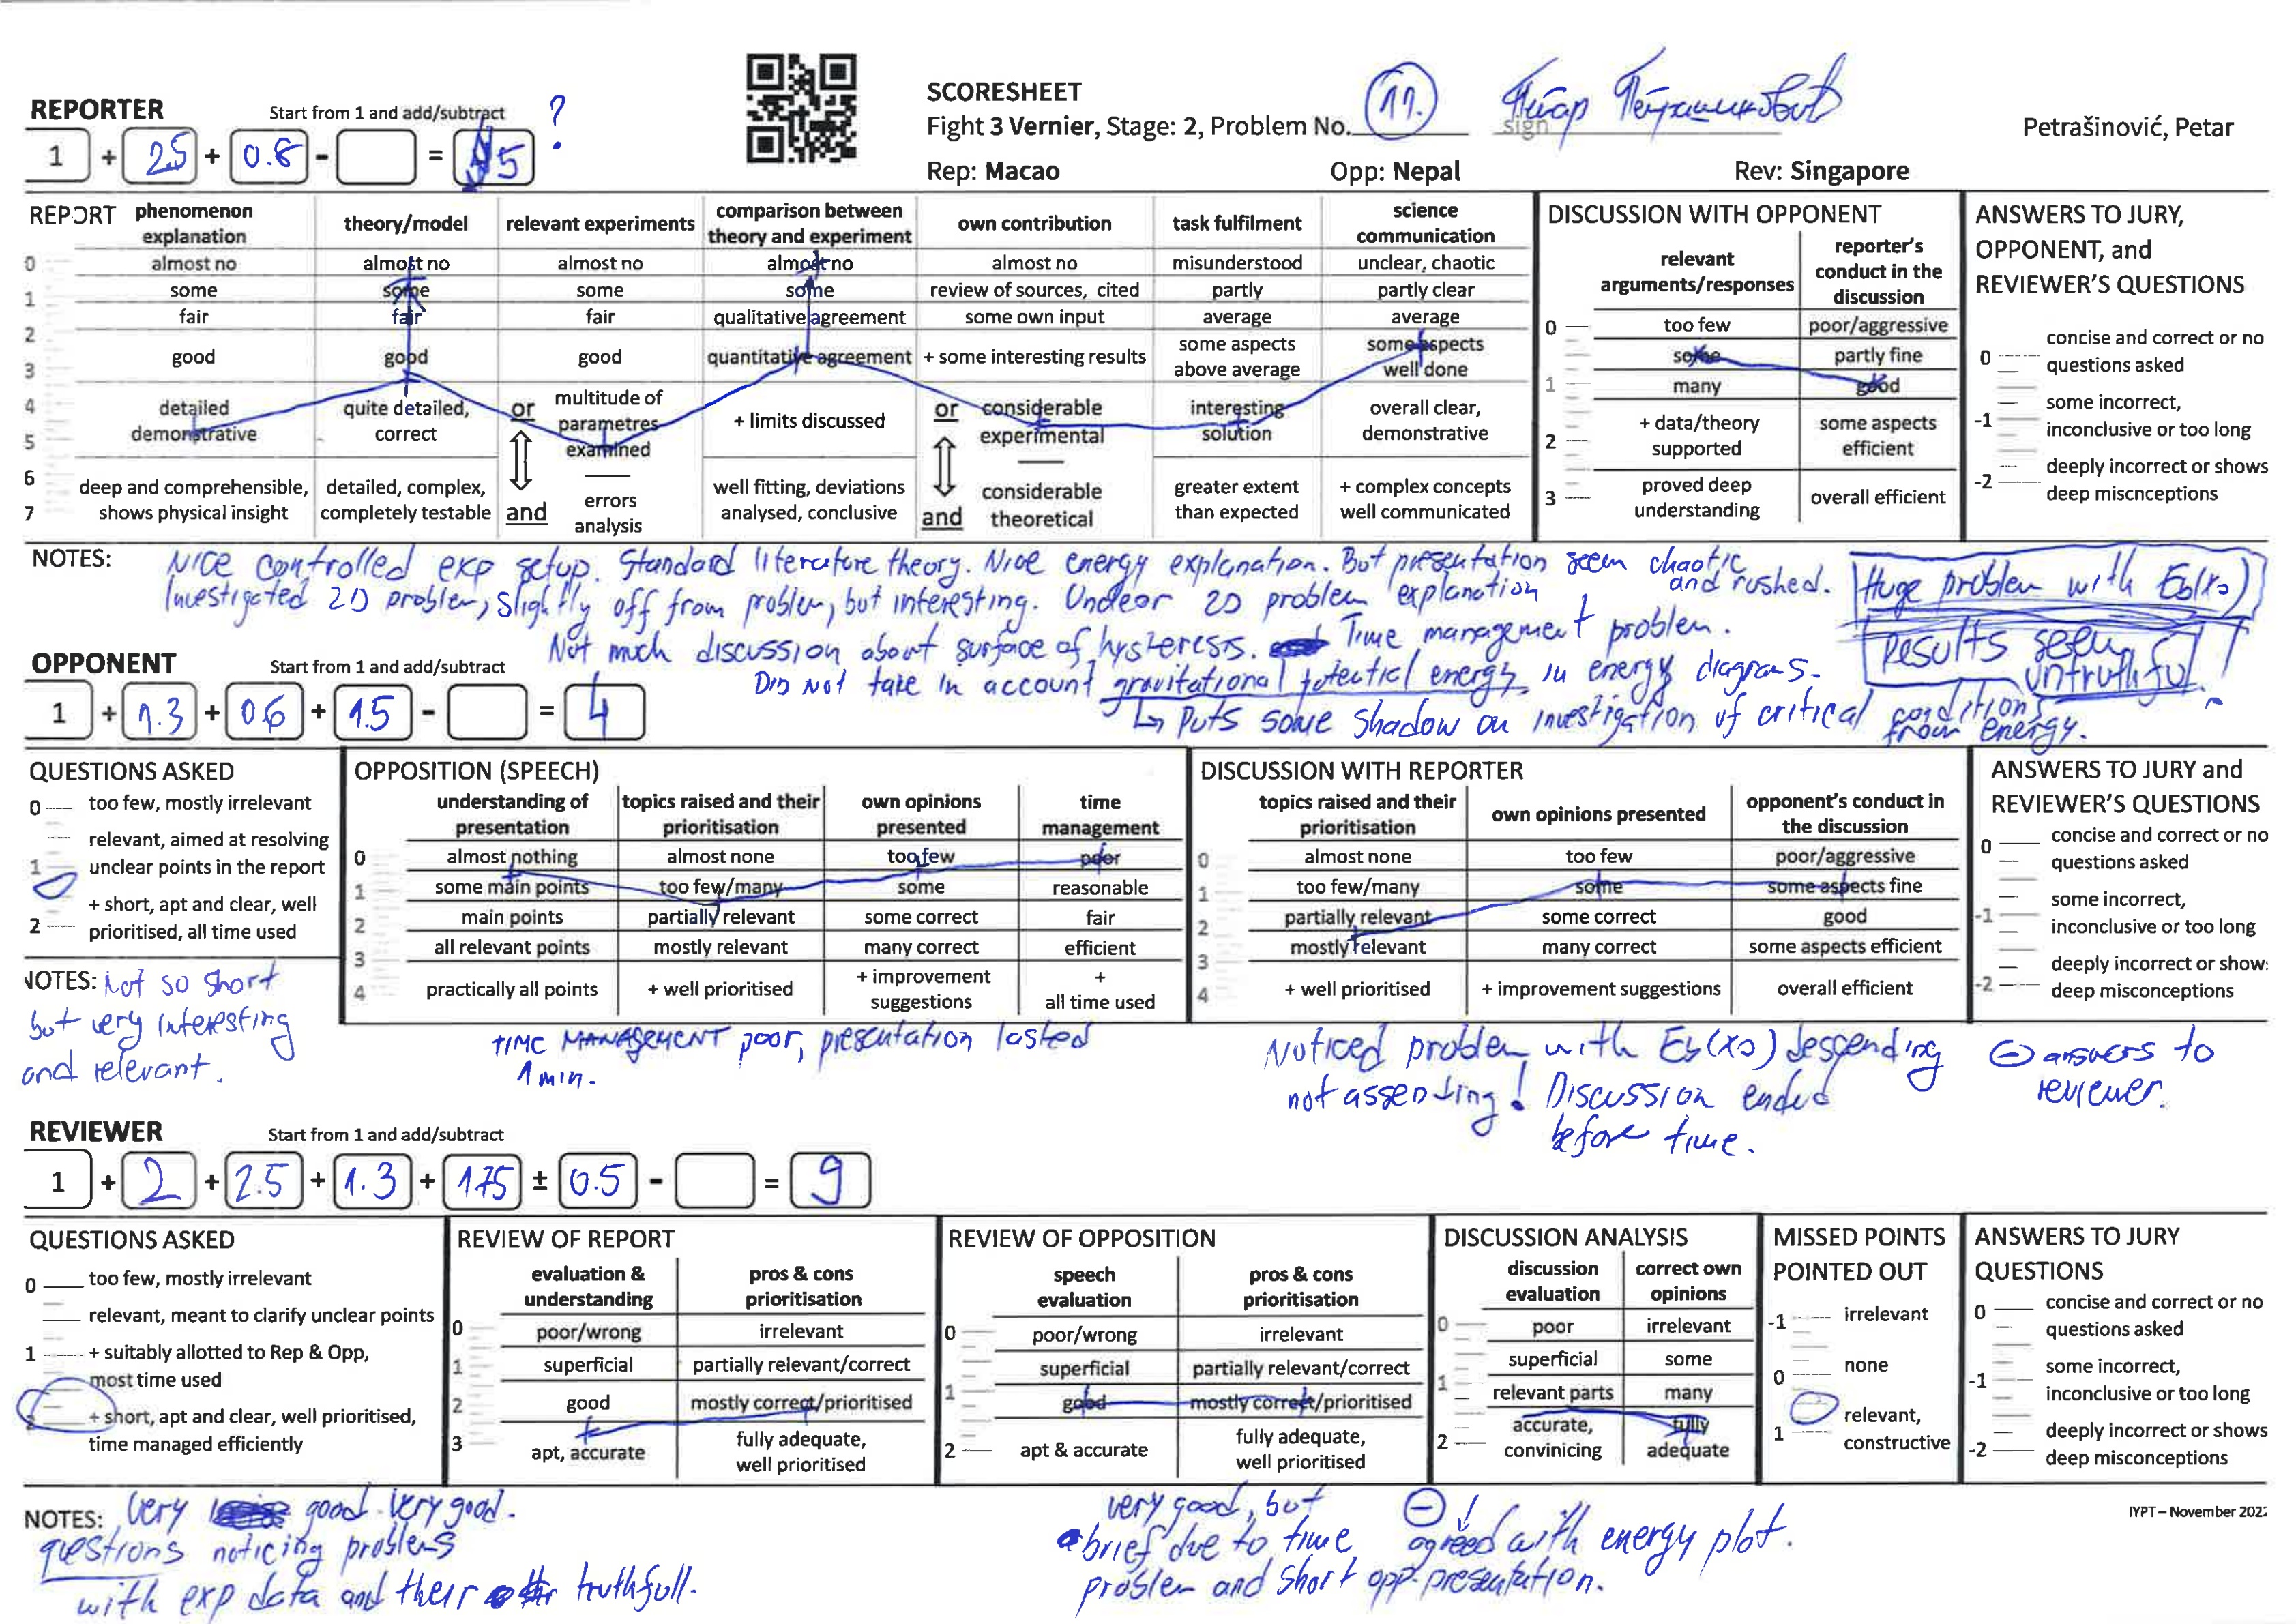 REPORTER Start from 1 and add/subtract ?
1 + 2.5 + 0.8 - = 5
SCORESHEET
Fight 3 Vernier, Stage: 2, Problem No. 11.
sign
Petrašinović, Petar
Rep: Macao Opp: Nepal Rev: Singapore
REPORT
phenomenon explanation
theory/model
relevant experiments
comparison between theory and experiment
own contribution
task fulfilment
science communication
0 almost no almost no almost no almost no almost no misunderstood unclear, chaotic
1 some some some some review of sources, cited partly partly clear
fair fair fair qualitative agreement some own input average average
2
good good good quantitative agreement + some interesting results some aspects above average some aspects well done
3
4 detailed quite detailed, or multitude of parametres examined + limits discussed or considerable experimental interesting solution overall clear, demonstrative
5 demonstrative correct
6 deep and comprehensible, detailed, complex, errors analysis well fitting, deviations considerable theoretical greater extent + complex concepts
7 shows physical insight completely testable and analysed, conclusive and than expected well communicated
DISCUSSION WITH OPPONENT
relevant arguments/responses
reporter's conduct in the discussion
0 too few poor/aggressive
some partly fine
1 many good
2 + data/theory supported some aspects efficient
3 proved deep understanding overall efficient
ANSWERS TO JURY,
OPPONENT, and
REVIEWER'S QUESTIONS
0 concise and correct or no questions asked
-1 some incorrect, inconclusive or too long
-2 deeply incorrect or shows deep miscnceptions
NOTES: Nice controlled exp setup. Standard literature theory. Nice energy explanation. But presentation seem chaotic and rushed.
Investigated 2D problem, slightly off from problem, but interesting. Unclear 2D problem explanation
Huge problem with Eb(x0)
Results seem untruthful!
Not much discussion about surface of hysteresis. Time management problem.
DID NOT take in account gravitational potential energy in energy diagrams.
↳ Puts some shadow on investigation of critical conditions from energy.
OPPONENT Start from 1 and add/subtract
1 + 1.3 + 0.6 + 1.5 - = 4
QUESTIONS ASKED
0 too few, mostly irrelevant
relevant, aimed at resolving
1 unclear points in the report
+ short, apt and clear, well
2 prioritised, all time used
NOTES: Not so short
but very interesting
and relevant.
OPPOSITION (SPEECH)
understanding of presentation
topics raised and their prioritisation
own opinions presented
time management
0 almost nothing almost none too few poor
1 some main points too few/many some reasonable
2 main points partially relevant some correct fair
all relevant points mostly relevant many correct efficient
3
4 practically all points + well prioritised + improvement suggestions + all time used
TIME MANAGEMENT poor, presentation lasted
1 min.
DISCUSSION WITH REPORTER
topics raised and their prioritisation
own opinions presented
opponent's conduct in the discussion
0 almost none too few poor/aggressive
1 too few/many some some aspects fine
2 partially relevant some correct good
mostly relevant many correct some aspects efficient
3
4 + well prioritised + improvement suggestions overall efficient
Noticed problem with Eb(x0) descending
not assending! Discussion ended
before time.
ANSWERS TO JURY and
REVIEWER'S QUESTIONS
0 concise and correct or no questions asked
-1 some incorrect, inconclusive or too long
-2 deeply incorrect or show: deep misconceptions
⊖ answers to
reviewer.
REVIEWER Start from 1 and add/subtract
1 + 2 + 2.5 + 1.3 + 1.75 ± 0.5 - = 9
QUESTIONS ASKED
0 too few, mostly irrelevant
relevant, meant to clarify unclear points
1 + suitably allotted to Rep & Opp,
most time used
2 + short, apt and clear, well prioritised,
time managed efficiently
REVIEW OF REPORT
evaluation & understanding
pros & cons prioritisation
0 poor/wrong irrelevant
1 superficial partially relevant/correct
2 good mostly correct/prioritised
3 apt, accurate fully adequate, well prioritised
REVIEW OF OPPOSITION
speech evaluation
pros & cons prioritisation
0 poor/wrong irrelevant
superficial partially relevant/correct
1 good mostly correct/prioritised
2 apt & accurate fully adequate, well prioritised
DISCUSSION ANALYSIS
discussion evaluation
correct own opinions
0 poor irrelevant
superficial some
1 relevant parts many
2 accurate, convinicing fully adequate
MISSED POINTS
POINTED OUT
-1 irrelevant
0 none
1 relevant, constructive
ANSWERS TO JURY
QUESTIONS
0 concise and correct or no questions asked
-1 some incorrect, inconclusive or too long
-2 deeply incorrect or shows deep misconceptions
NOTES: Very good. Very good.
questions noticing problems
with exp data and their truthfull.
very good, but
brief due to time
problem and short opp. presentation.
⊖ agreed with energy plot.
IYPT – November 202